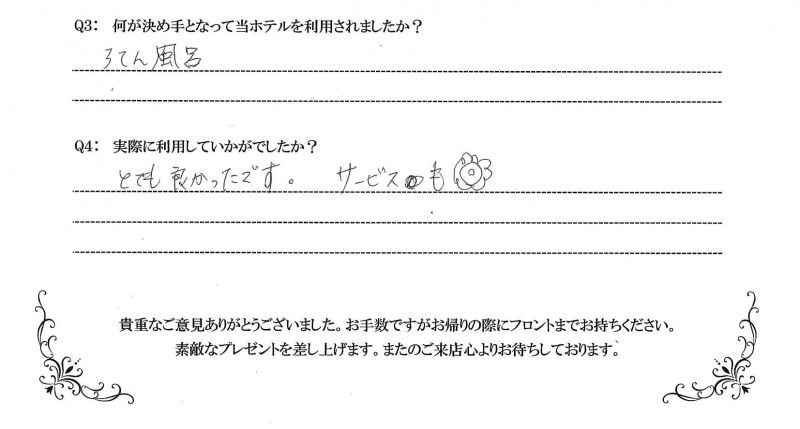 Q3: 何が決め手となって当ホテルを利用されましたか?
ろてん風呂
Q4: 実際に利用していかがでしたか?
とても良かったです。 サービスも
貴重なご意見ありがとうございました。お手数ですがお帰りの際にフロントまでお持ちください。
素敵なプレゼントを差し上げます。またのご来店心よりお待ちしております。